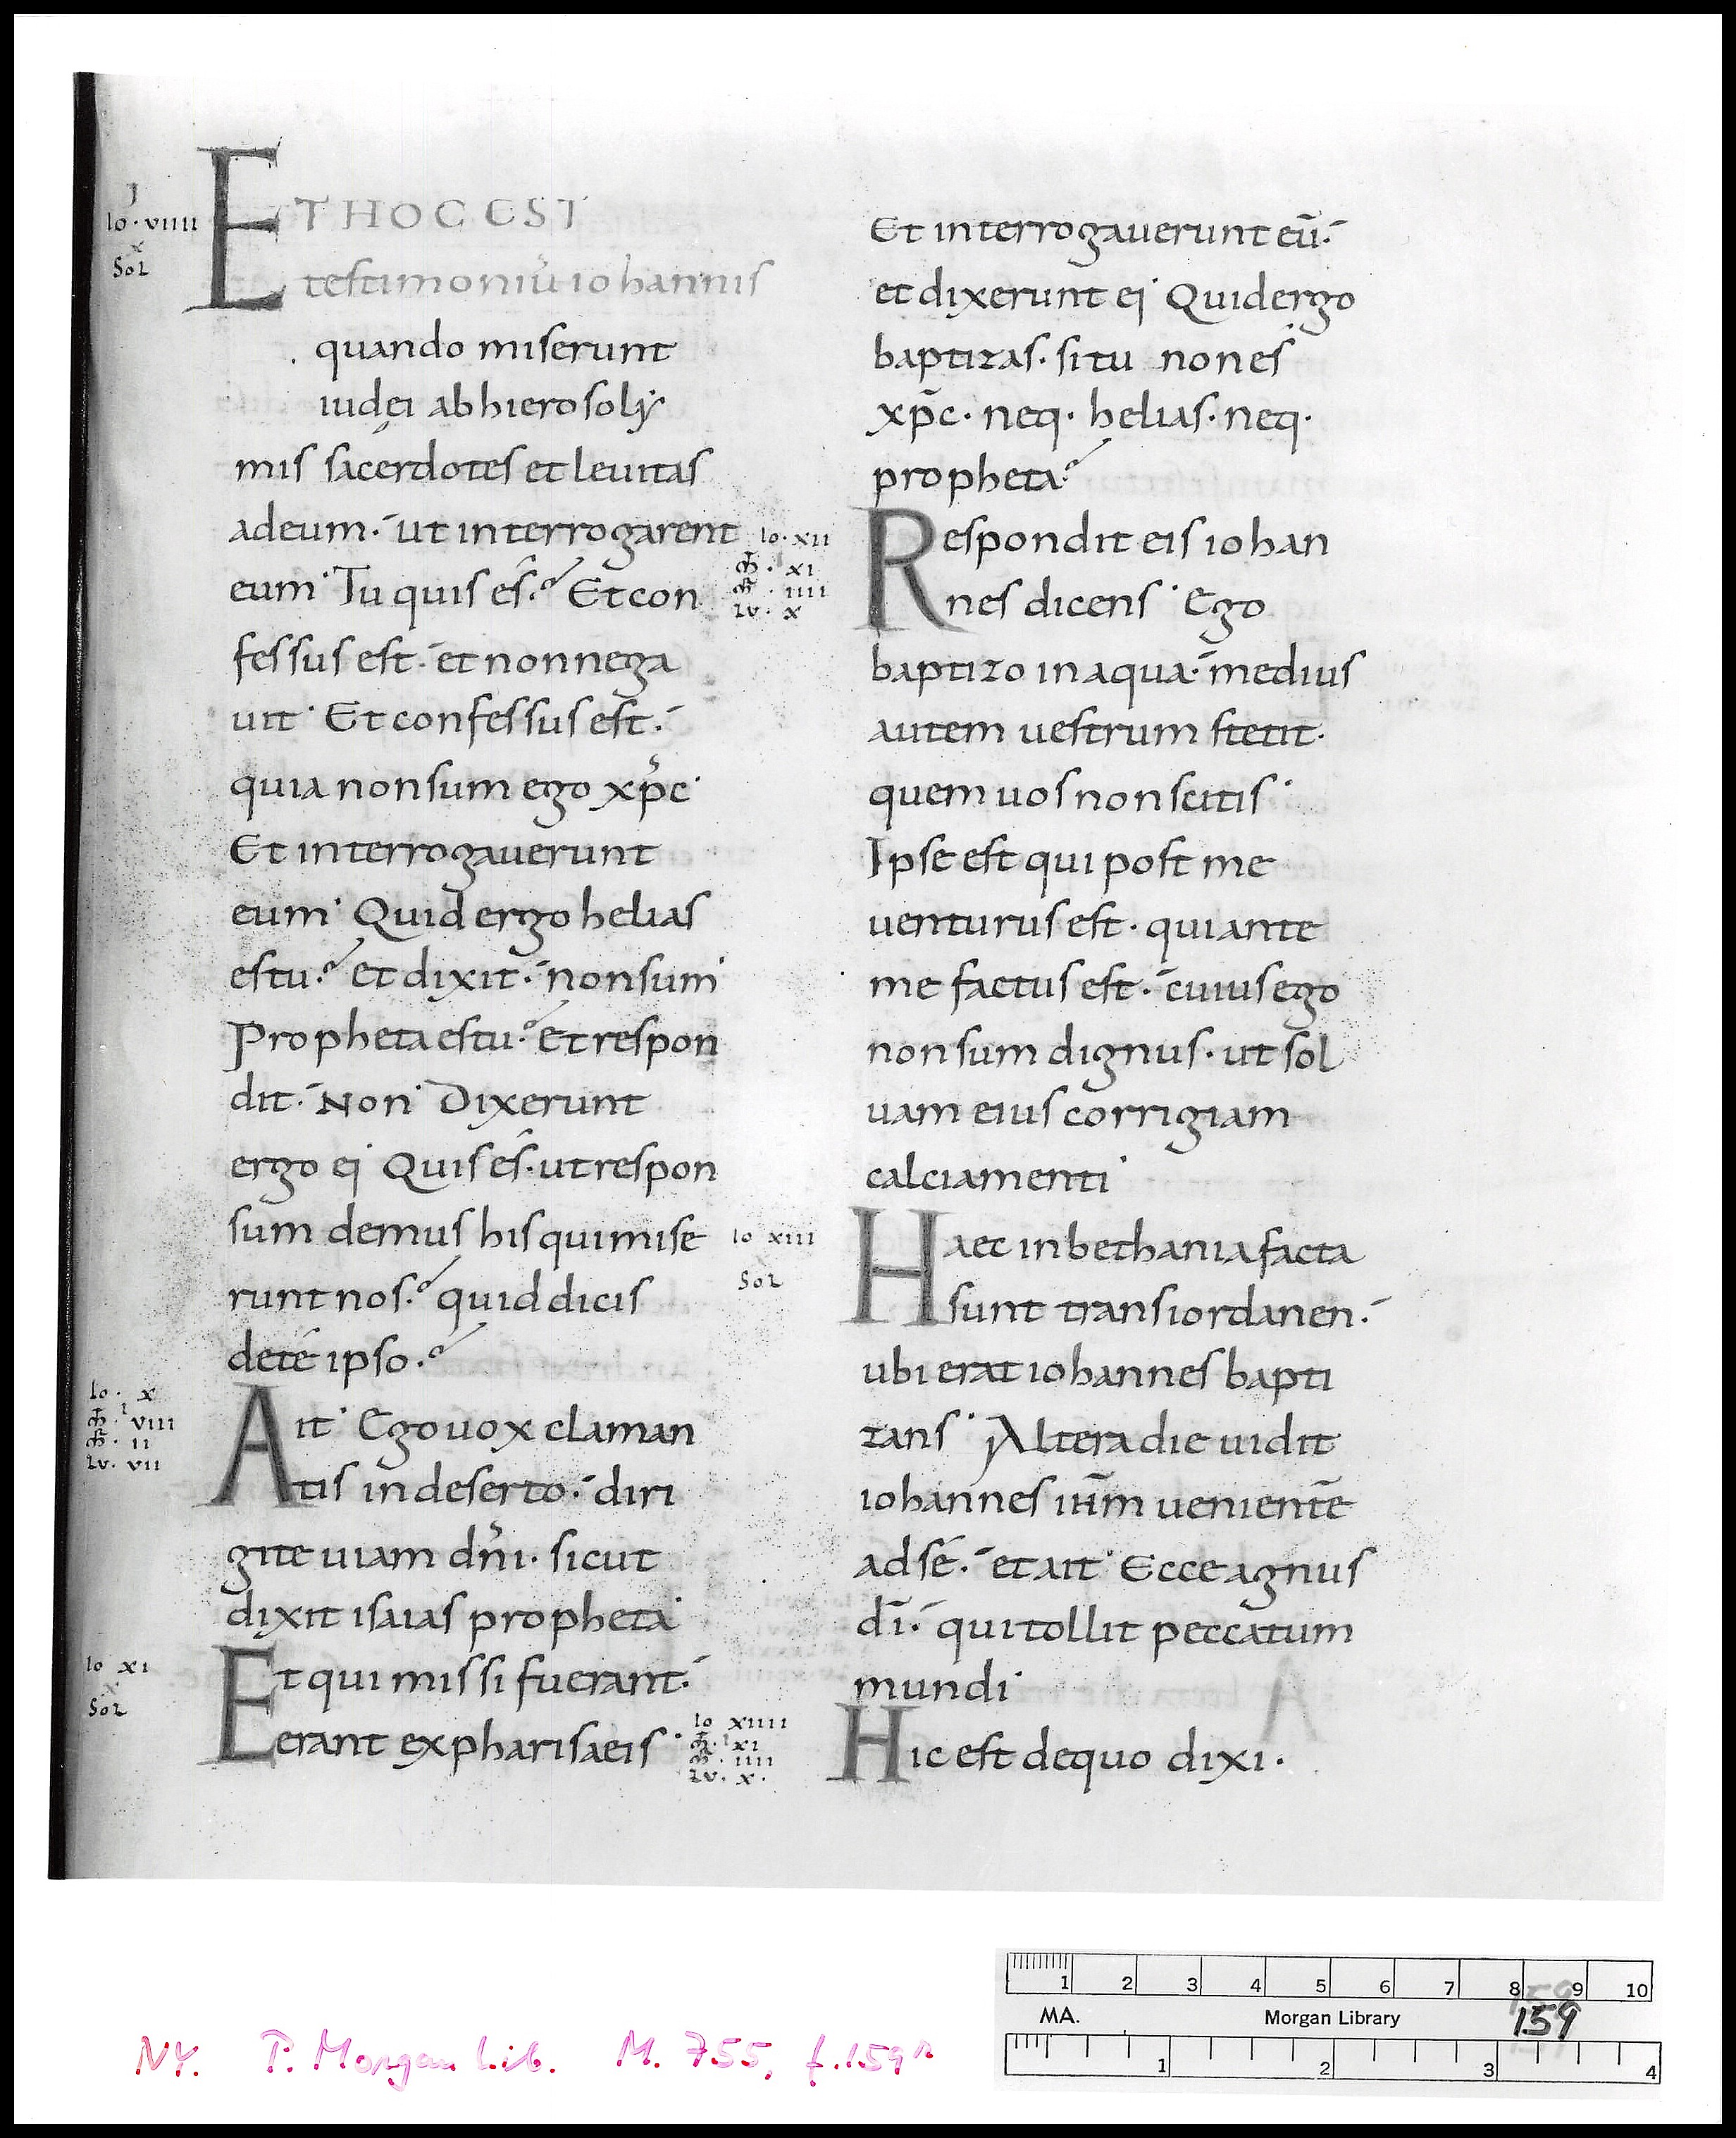 J
Io · VIIII
X
Sol
ET HOC EST
testimoniū iohannis
quando miserunt
iudei ab hierosoly
mis sacerdotes et leuitas
ad eum · ut interrogarent
eum · Tu quis es? Et con
fessus est · et non nega
uit · Et confessus est ·
quia non sum ego xp̄c ·
Et interrogauerunt
eum · Quid ergo helias
es tu? et dixit · non sum ·
Propheta es tu? Et respon
dit · Non · Dixerunt
ergo ei · Quis es · ut respon
sum demus his qui mise
runt nos? quid dicis
de te ipso?
Io · X
VIII
II
LU · VII
Ait · Ego uox claman
tis in deserto · diri
gite uiam dn̄i · sicut
dixit isaias propheta ·
Io XI
X
Sol
Et qui missi fuerant ·
erant ex pharisaeis ·
Et interrogauerunt eū ·
et dixerunt ei · Quid ergo
baptizas · si tu non es
xp̄c · neq · helias · neq ·
propheta?
Io · XII
XI
IIII
LU · X
Respondit eis iohan
nes dicens · Ego
baptizo in aqua · medius
autem uestrum stetit ·
quem uos non scitis ·
Ipse est qui post me
uenturus est · qui ante
me factus est · cuius ego
non sum dignus · ut sol
uam eius corrigiam
calciamenti ·
Io XIII
X
Sol
Haec in bethania facta
sunt trans iordanen ·
ubi erat iohannes bapti
zans · Altera die uidit
iohannes ih̄m uenientē
ad se · et ait · Ecce agnus
dī · qui tollit peccatum
mundi ·
Io XIIII
XI
IIII
LU · X ·
Hic est de quo dixi ·
1 2 3 4 5 6 7 8 9 10
MA. Morgan Library 159
1 2 3 4
NY. P. Morgan Lib. M. 755, f. 159r